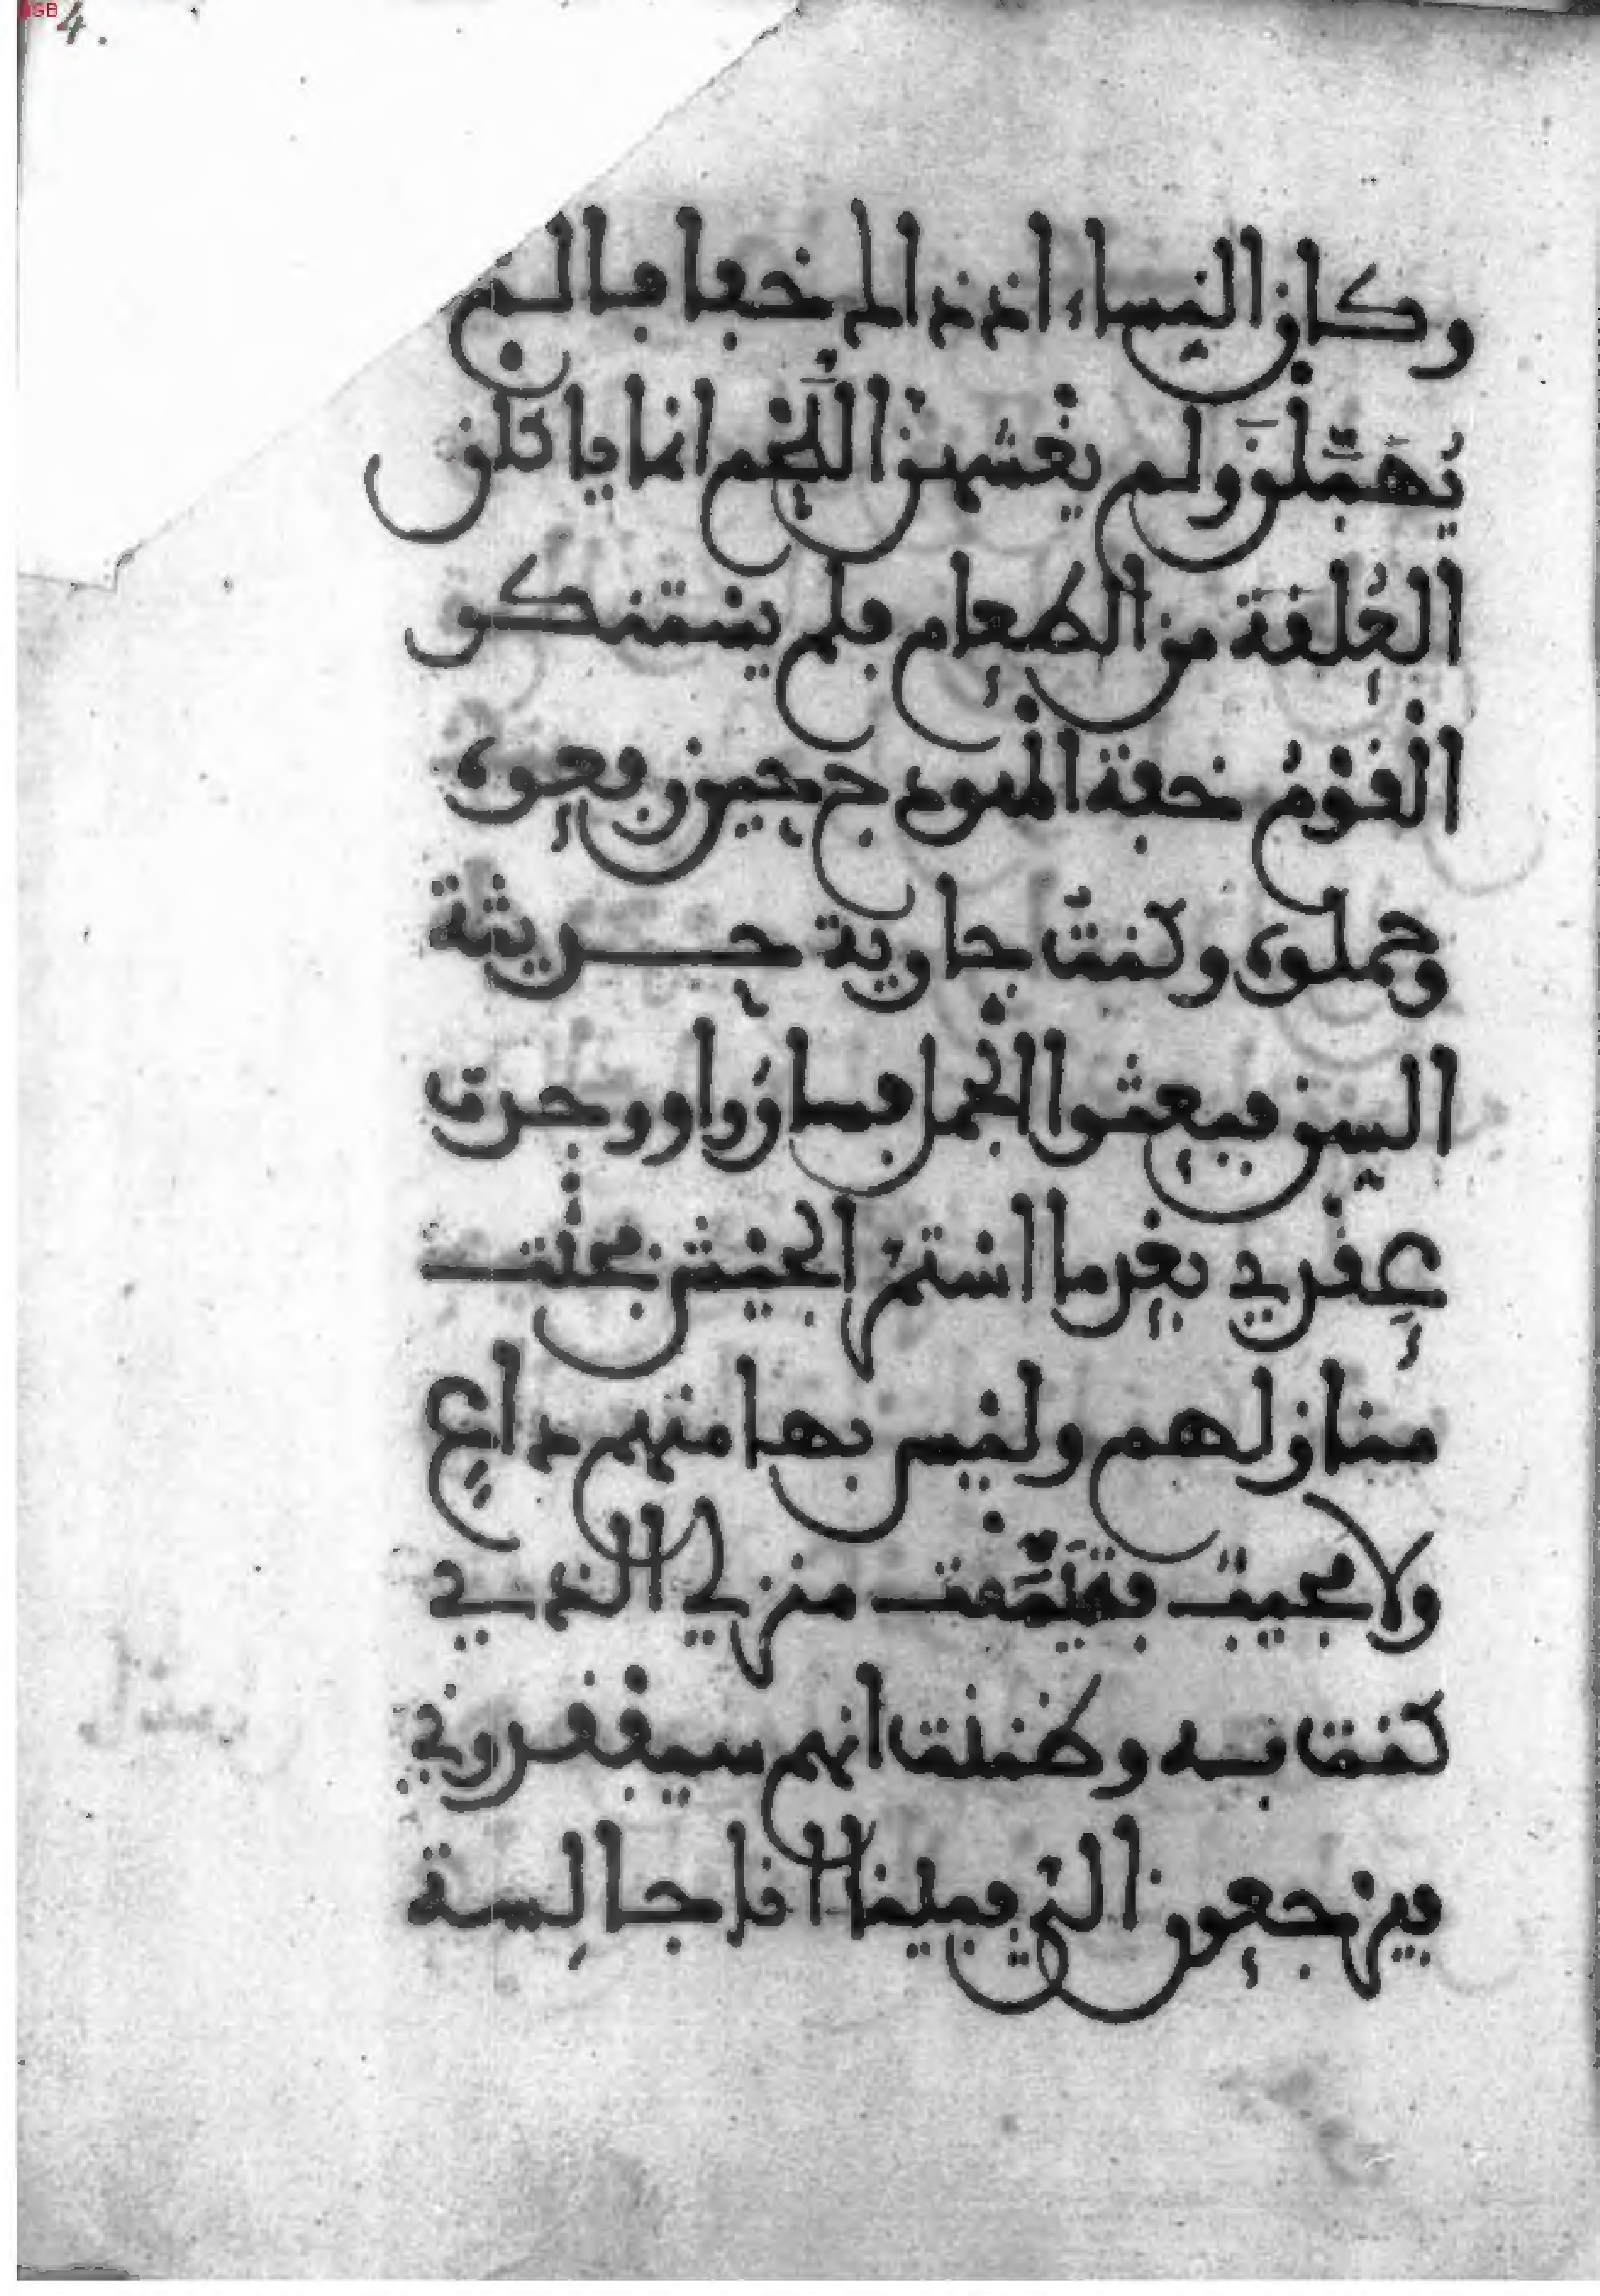 4.
وكان النساء اذ ذاك خفافا لم
يُهَبَّلْنَ ولم يغشهن اللَّحْم انما ياكلن
العُلْقَةَ من الطعام فلم يستنكر
الْقَوْمُ خفة الهودج حين رفعوه
وحملوه وكنتُ جارية حديثة
السن فبعثوا الْجمل فسارُوا ووجدت
عِقْدي بعْد ما استمرّ الجيْش فجئْت
منازلهم وليْس بها منهم داعٍ
ولا مجيبٌ فتيَمَّمْت منزلي الذي
كنت فيه وظننت انهم سيفْقدوني
فيرجعون الىّ فبيْنا انا جالِسة